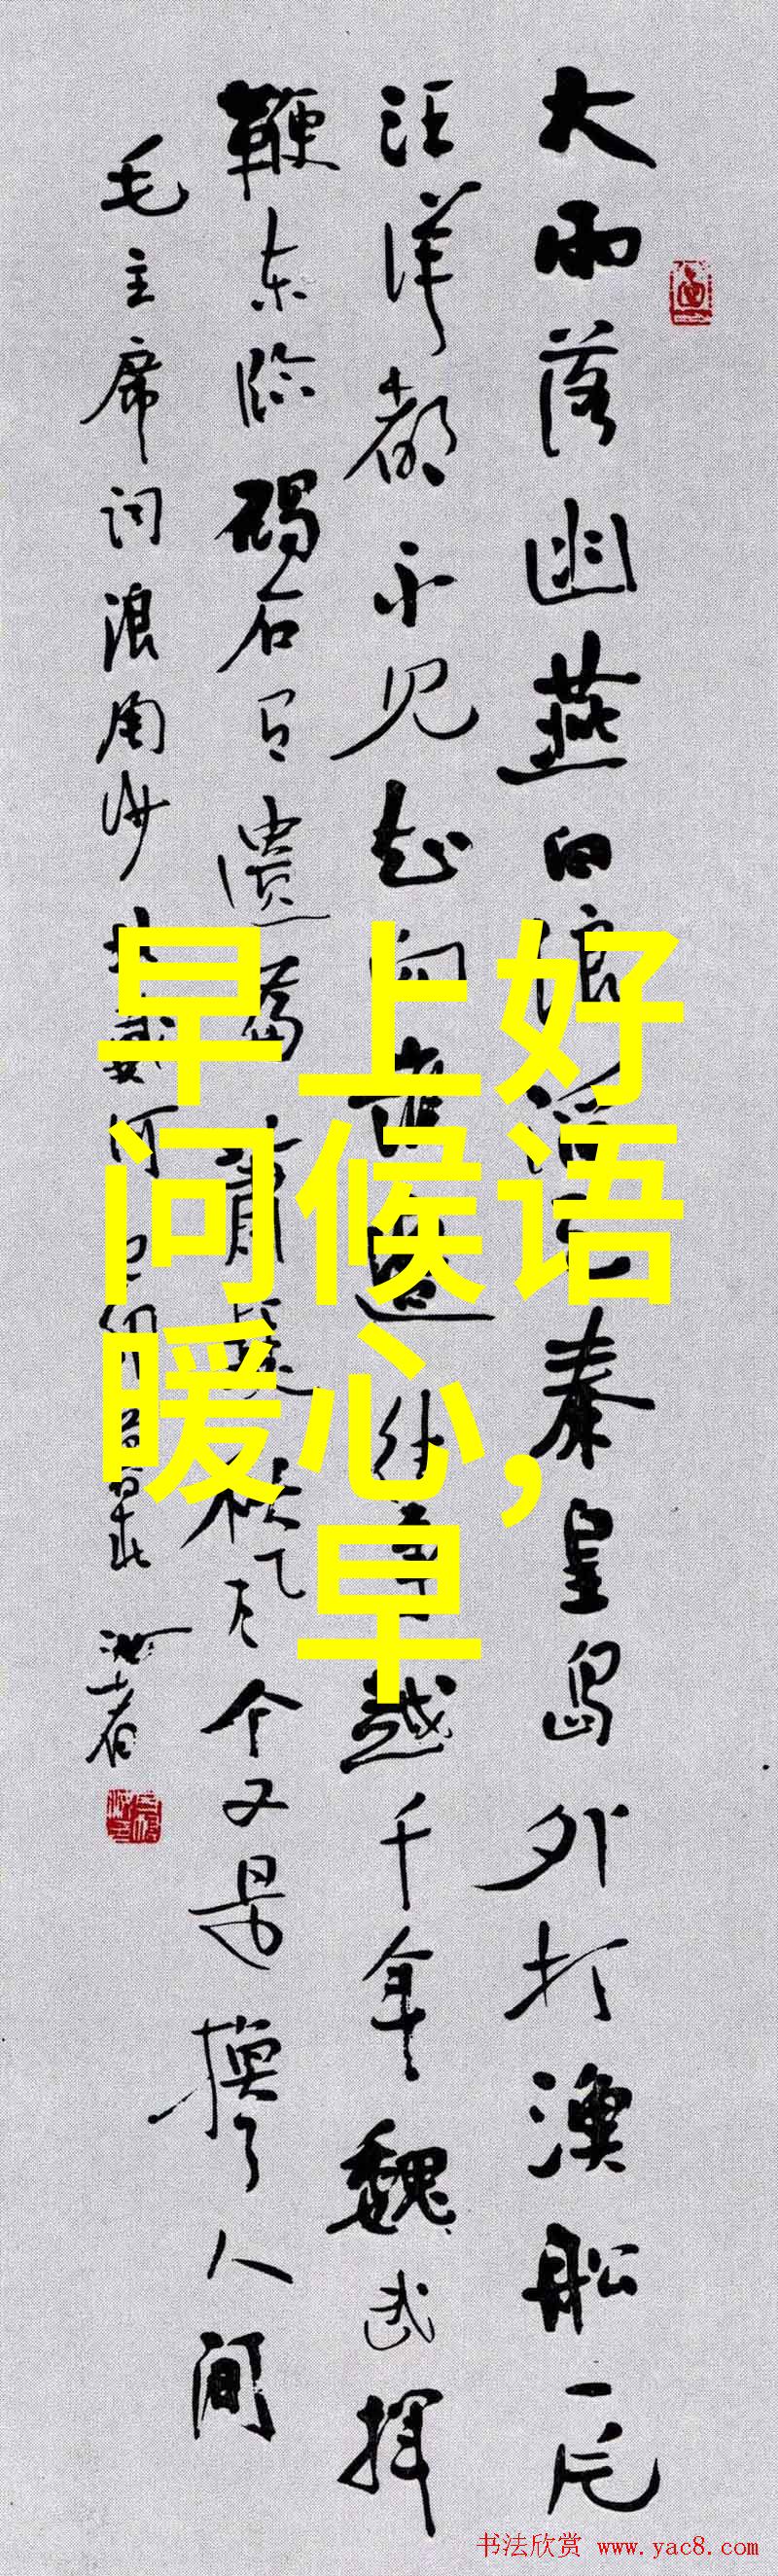 大雨落幽燕白浪滔天秦皇岛外打漁船一片
汪洋都不见知向誰邊往事越千年魏武揮
鞭东临碣石有遺篇蕭瑟秋风今又是換了人间
毛主席词浪淘沙北戴河
早上好
问候语
暖心，
早
书法欣赏 www.yac8.com